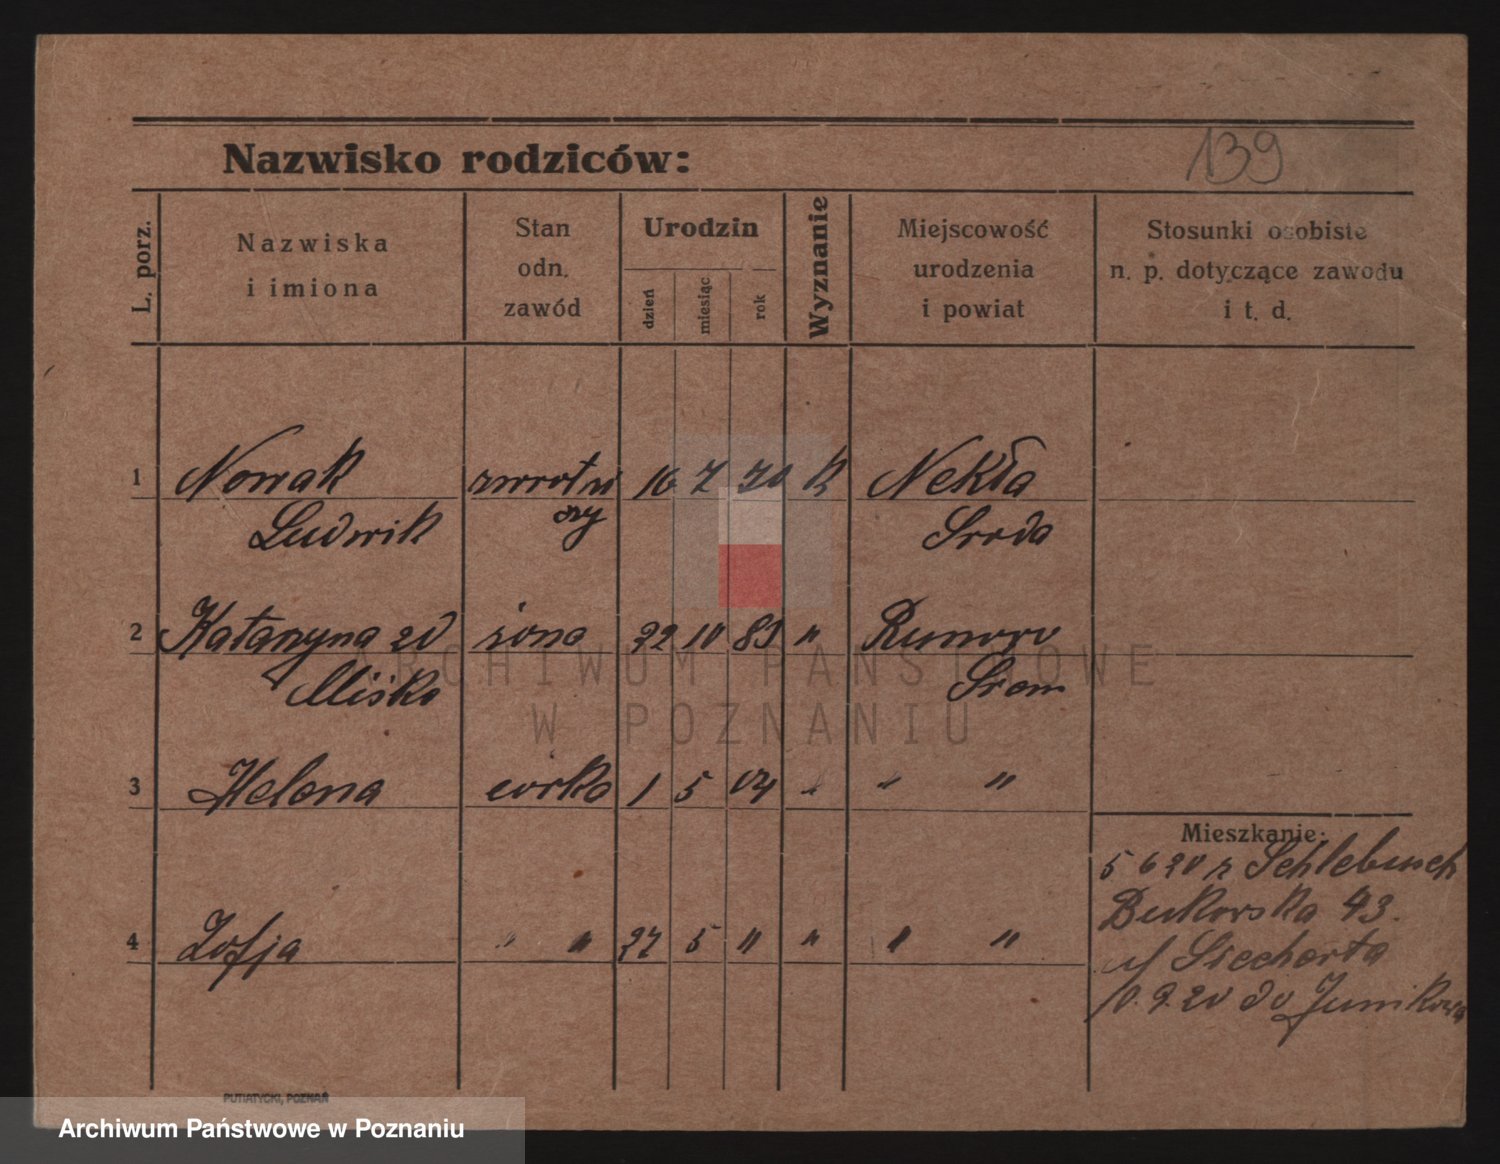 139
Nazwisko rodziców:
L. porz.
Nazwiska
i imiona
Stan
odn.
zawód
Urodzin
dzień
miesiąc
rok
Wyznanie
Miejscowość
urodzenia
i powiat
Stosunki osobiste
n. p. dotyczące zawodu
i t. d.
1 Nowak 16 7 70 k Nekla
Ludwik Sroda
2 Katarzyna zd żona 22 10 83 "
Miśko Srem
3 Helena corka 1 5 04 " " "
Mieszkanie:
5 6 20 z Schlebusch
Bukowska 43.
4 Zofja " " 27 5 " " " "
10. 9. 20 do Junikowa
PUTIATYCKI, POZNAŃ
ARCHIWUM PAŃSTWOWE
W POZNANIU
Archiwum Państwowe w Poznaniu